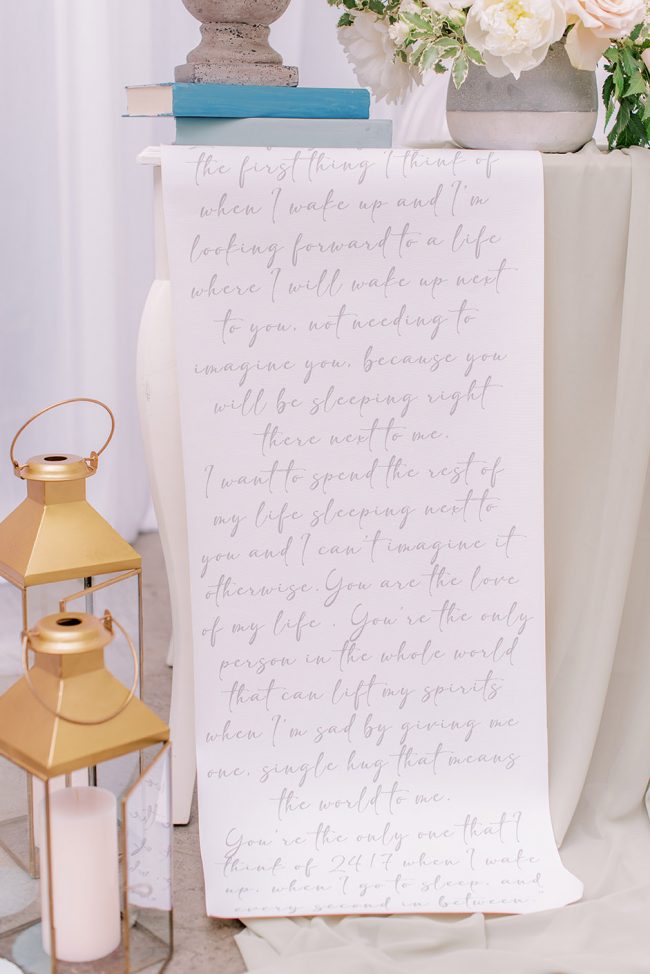 the first thing I think of
when I wake up and I'm
looking forward to a life
where I will wake up next
to you, not needing to
imagine you, because you
will be sleeping right
there next to me.
I want to spend the rest of
my life sleeping next to
you and I can't imagine it
otherwise. You are the love
of my life . You're the only
person in the whole world
that can lift my spirits
when I'm sad by giving me
one, single hug that means
the world to me.
You're the only one that I
think of 24/7 when I wake
up, when I go to sleep, and
every second in between.